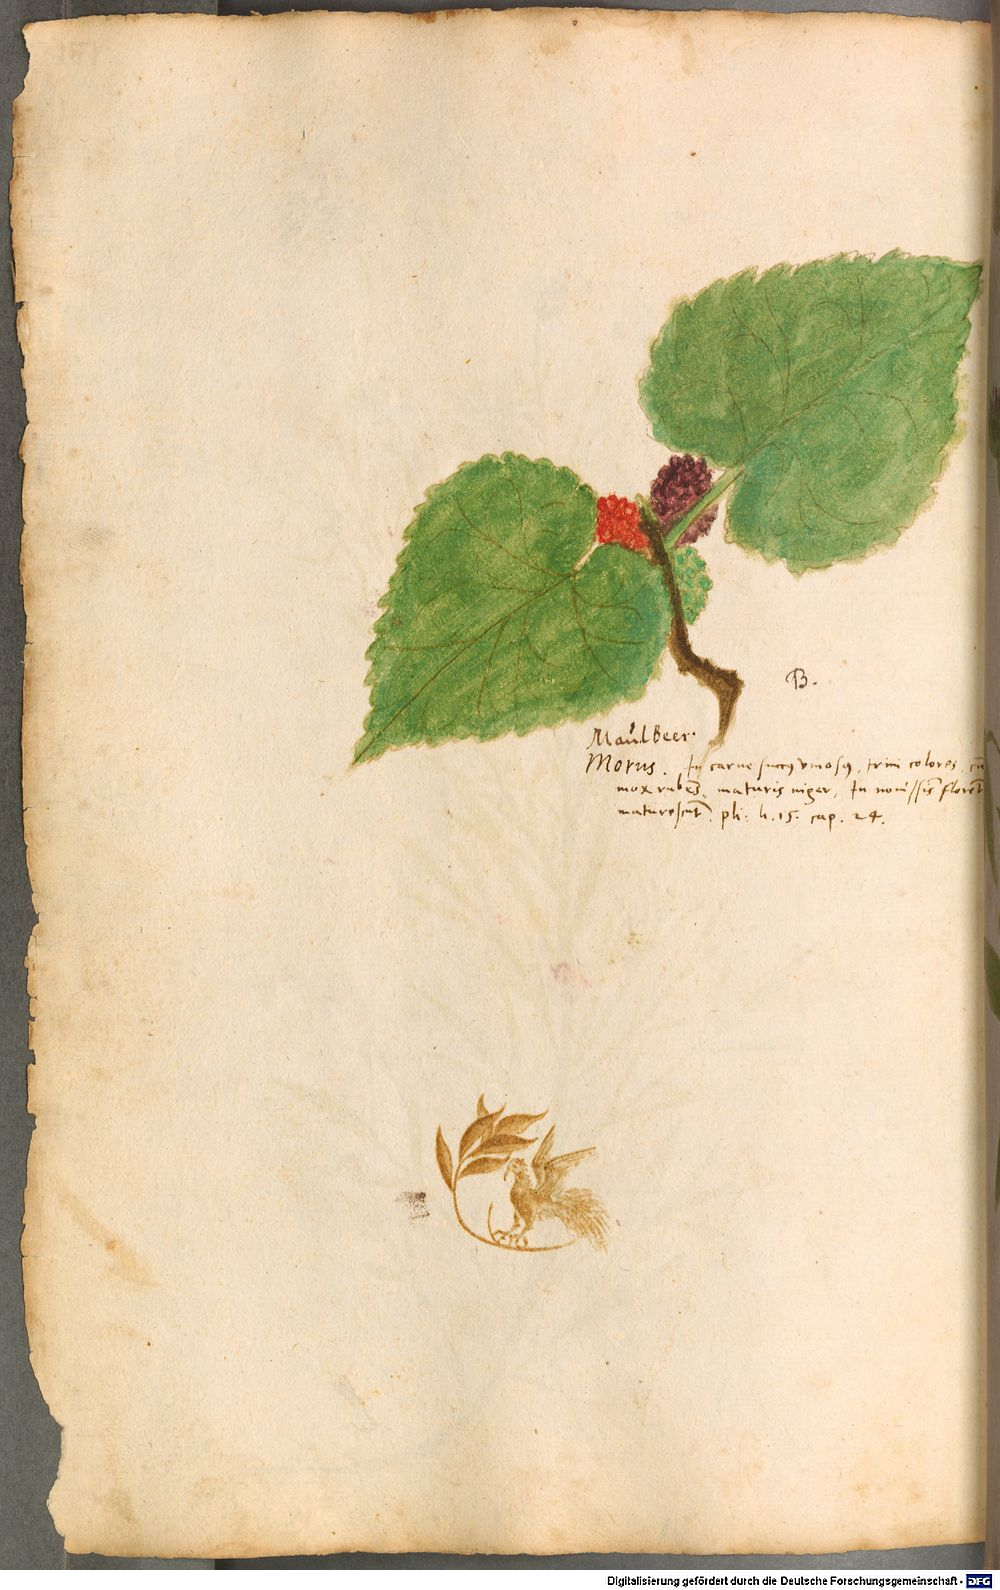 B.
Maulbeer.
Morus. In carne succus vinosus, trini colores,
mox rubens, maturis niger, In novissimis florent
maturescunt. pli. li. 15. cap. 24.
Digitalisierung gefördert durch die Deutsche Forschungsgemeinschaft - DFG